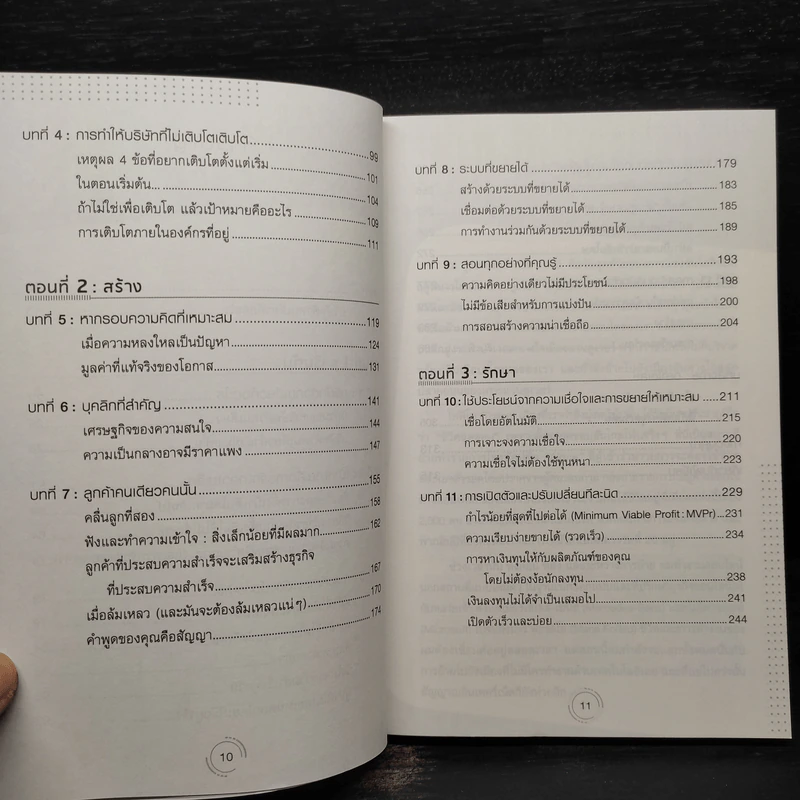 บทที่ 4 : การทำให้บริษัทที่ไม่เติบโตเติบโต 99
เหตุผล 4 ข้อที่อยากเติบโตตั้งแต่เริ่ม 101
ในตอนเริ่มต้น... 104
ถ้าไม่ใช่เพื่อเติบโต แล้วเป้าหมายคืออะไร 109
การเติบโตภายในองค์กรที่อยู่ 111
ตอนที่ 2 : สร้าง
บทที่ 5 : หากรอบความคิดที่เหมาะสม 119
เมื่อความหลงใหลเป็นปัญหา 124
มูลค่าที่แท้จริงของโอกาส 131
บทที่ 6 : บุคลิกที่สำคัญ 141
เศรษฐกิจของความสนใจ 144
ความเป็นกลางอาจมีราคาแพง 147
บทที่ 7 : ลูกค้าคนเดียวคนนั้น 155
คลื่นลูกที่สอง 158
ฟังและทำความเข้าใจ : สิ่งเล็กน้อยที่มีผลมาก 162
ลูกค้าที่ประสบความสำเร็จจะเสริมสร้างธุรกิจ
ที่ประสบความสำเร็จ 167
เมื่อล้มเหลว (และมันจะต้องล้มเหลวแน่ๆ) 170
คำพูดของคุณคือสัญญา 174
10
บทที่ 8 : ระบบที่ขยายได้ 179
สร้างด้วยระบบที่ขยายได้ 183
เชื่อมต่อด้วยระบบที่ขยายได้ 185
การทำงานร่วมกันด้วยระบบที่ขยายได้ 189
บทที่ 9 : สอนทุกอย่างที่คุณรู้ 193
ความคิดอย่างเดียวไม่มีประโยชน์ 198
ไม่มีข้อเสียสำหรับการแบ่งปัน 200
การสอนสร้างความน่าเชื่อถือ 204
ตอนที่ 3 : รักษา
บทที่ 10 : ใช้ประโยชน์จากความเชื่อใจและการขยายให้เหมาะสม 211
เชื่อโดยอัตโนมัติ 215
การเจาะจงความเชื่อใจ 220
ความเชื่อใจไม่ต้องใช้ทุนหนา 223
บทที่ 11 : การเปิดตัวและปรับเปลี่ยนทีละนิด 229
กำไรน้อยที่สุดที่ไปต่อได้ (Minimum Viable Profit : MVPr) 231
ความเรียบง่ายขายได้ (รวดเร็ว) 234
การหาเงินทุนให้กับผลิตภัณฑ์ของคุณ
โดยไม่ต้องง้อนักลงทุน 238
เงินลงทุนไม่ได้จำเป็นเสมอไป 241
เปิดตัวเร็วและบ่อย 244
11